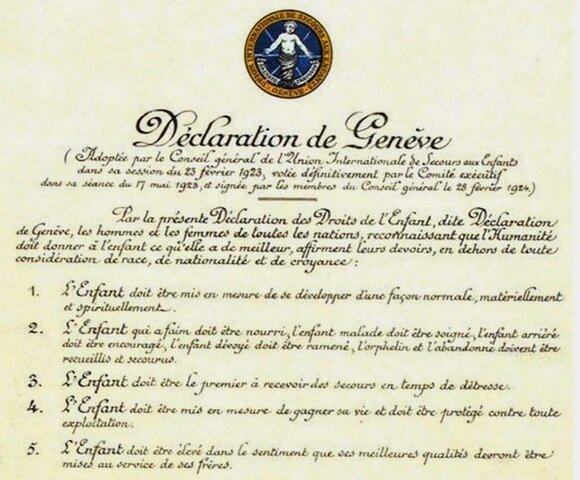 UNION INTERNATIONALE DE SECOURS AUX ENFANTS
GENÈVE
Déclaration de Genève
(Adoptée par le Conseil général de l'Union Internationale de Secours aux Enfants
dans sa session du 23 février 1923, votée définitivement par le Comité exécutif
dans sa séance du 17 mai 1923, et signée par les membres du Conseil général le 28 février 1924.)
Par la présente Déclaration des Droits de l'Enfant, dite Déclaration
de Genève, les hommes et les femmes de toutes les nations, reconnaissant que l'Humanité
doit donner à l'enfant ce qu'elle a de meilleur, affirment leurs devoirs, en dehors de toute
considération de race, de nationalité et de croyance :
1. L'Enfant doit être mis en mesure de se développer d'une façon normale, matériellement
et spirituellement.
2. L'Enfant qui a faim doit être nourri, l'enfant malade doit être soigné, l'enfant arriéré
doit être encouragé, l'enfant dévoyé doit être ramené, l'orphelin et l'abandonné doivent être
recueillis et secourus.
3. L'Enfant doit être le premier à recevoir des secours en temps de détresse.
4. L'Enfant doit être mis en mesure de gagner sa vie et doit être protégé contre toute
exploitation.
5. L'Enfant doit être élevé dans le sentiment que ses meilleures qualités devront être
mises au service de ses frères.